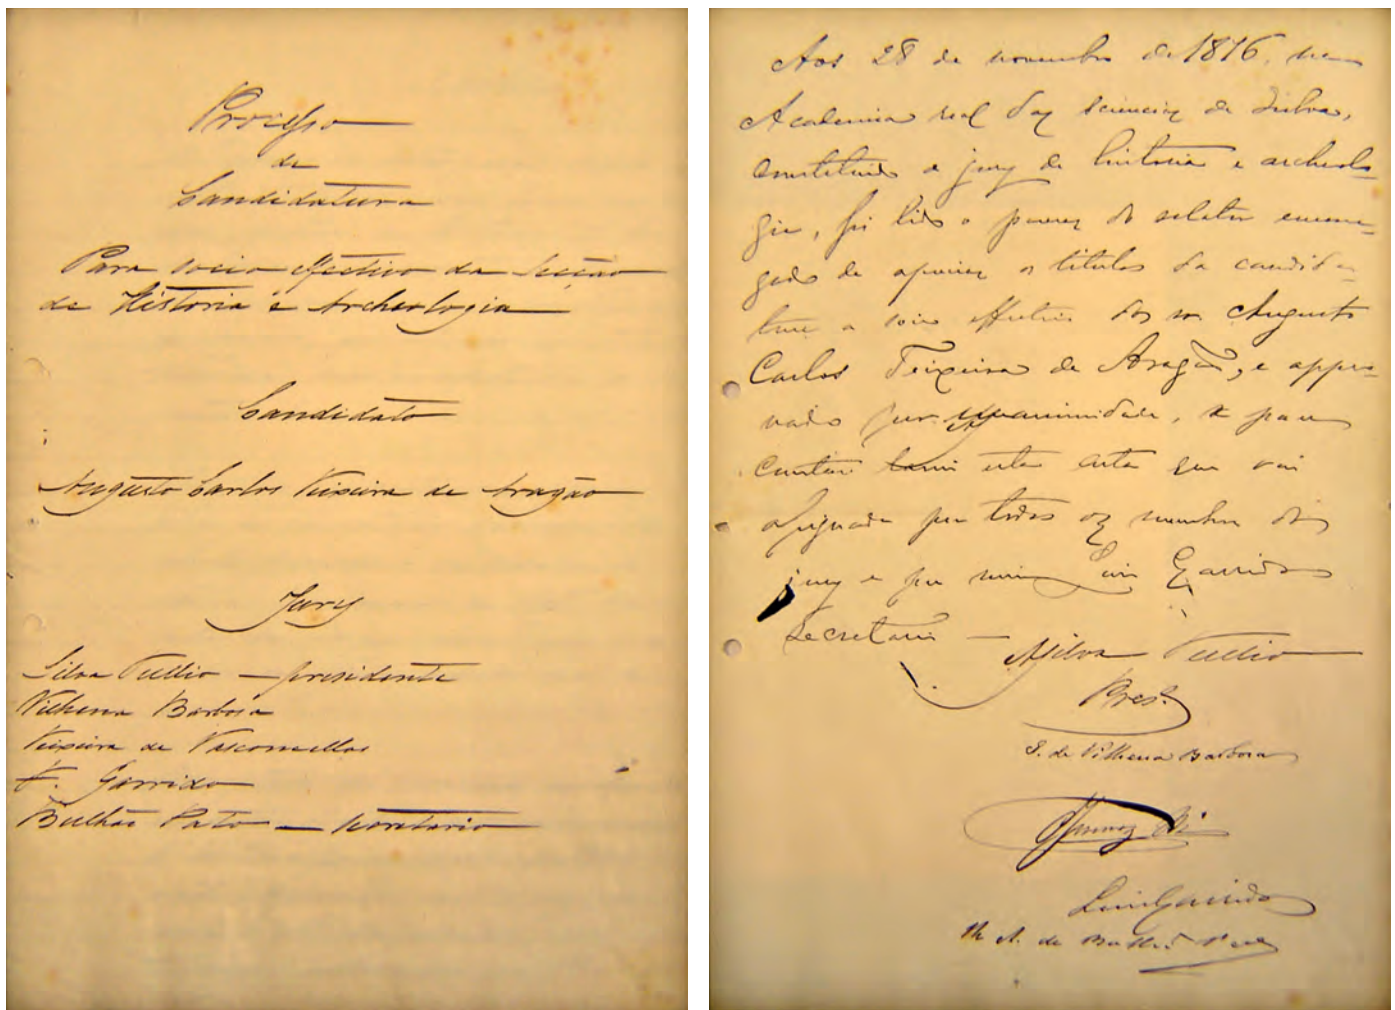 Processo
de
Candidatura
Para socio effectivo da Secção
de Historia e Archeologia
Candidato
Augusto Carlos Teixeira de Aragão
Jury
Silva Tullio — presidente
Vilhena Barbosa
Teixeira de Vasconcellos
F. Garrido
Bulhão Pato — secretario
Aos 28 de novembro de 1876, na
Academia real das sciencias de Lisboa,
constituido o jury de historia e archeolo-
gia, foi lido o parecer do relator encarre-
gado de apreciar os titulos da candida-
tura a socio effectivo do sr. Augusto
Carlos Teixeira de Aragão, e appro-
vado por unanimidade, e para
constar lavrei esta acta que vai
assignada por todos os membros do
jury e por mim Luis Garrido
secretario —
A Silva Tullio
Pres.
I. de Vilhena Barbosa
Luis Garrido
R. A. de Bulhão Pato